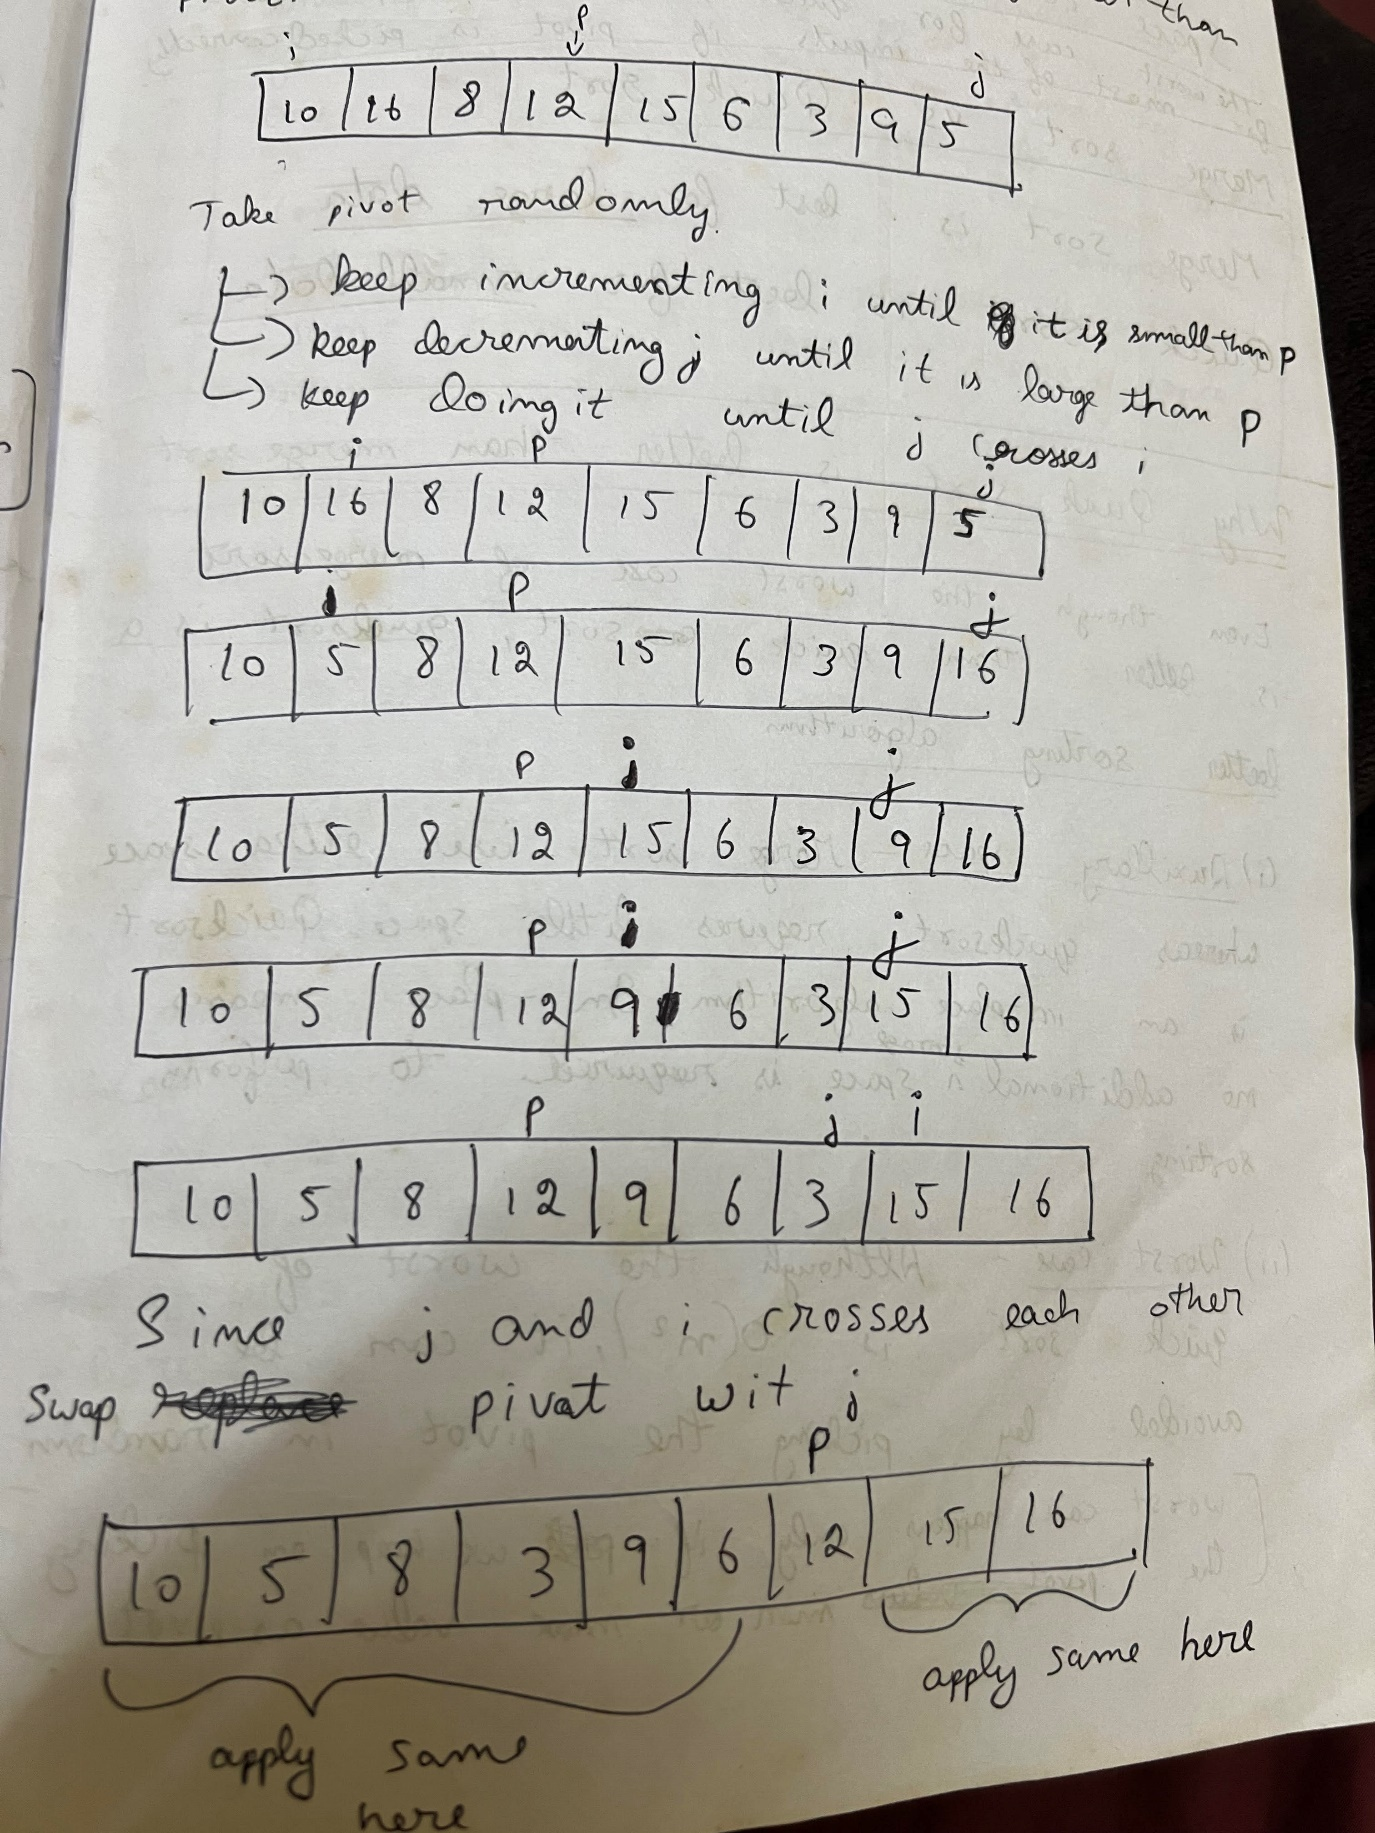 than
i p j
10 16 8 12 15 6 3 9 5
Take pivot randomly.
→ keep incrementing i until it is small than p
→ keep decrementing j until it is large than p
→ keep doing it until j crosses i
i p j
10 16 8 12 15 6 3 9 5
i p j
10 5 8 12 15 6 3 9 16
p i j
10 5 8 12 15 6 3 9 16
p i j
10 5 8 12 9 6 3 15 16
p j i
10 5 8 12 9 6 3 15 16
Since j and i crosses each other
Swap pivat wit j
p
10 5 8 3 9 6 12 15 16
apply same here
apply same
here